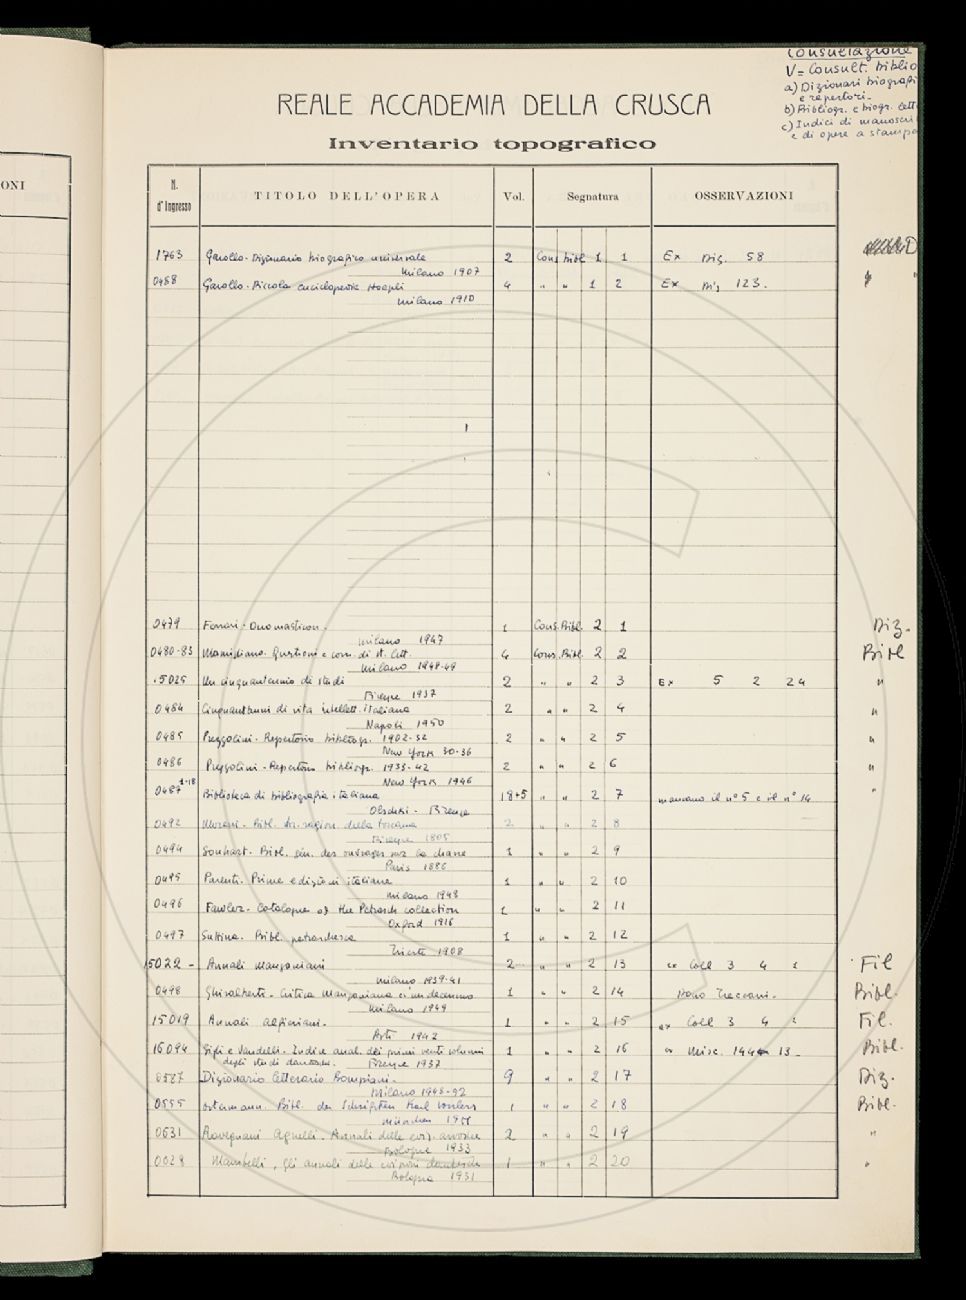 ONI
Consultazione
V = Consult. Biblio
a) Dizionari biografi
e repertori.
b) Bibliogr. e biogr. lett
c) Indici di manoscri
e di opere a stampa
REALE ACCADEMIA DELLA CRUSCA
Inventario topografico
N. d'Ingresso TITOLO DELL'OPERA Vol. Segnatura OSSERVAZIONI
1763 Garollo - Dizionario biografico universale 2 Cons Bibl 1 1 Ex Diz. 58
Milano 1907
0458 Garollo - Piccola enciclopedia Hoepli 4 " " 1 2 Ex Diz 123.
Milano 1910
0479 Ferrari - Onomasticon. 1 Cons. Bibl. 2 1 Diz.
Milano 1947
0480-83 Momigliano. Questioni e corr. di st. lett. 4 Cons. Bibl. 2 2 Bibl
Milano 1948-49
15025 Un cinquantennio di studi 2 " " 2 3 Ex 5 2 24 "
Firenze 1937
0484 Cinquant'anni di vita intellett. italiana 2 " " 2 4 "
Napoli 1950
0485 Prezzolini - Repertorio bibliogr. 1902-32 2 " " 2 5 "
New York 30-36
0486 Prezzolini - Repertorio bibliogr. 1933-42 2 " " 2 6 "
New York 1946
0487 1-18 Biblioteca di bibliografia italiana 18+5 " " 2 7 mancano il n° 5 e il n° 14 "
Olschki - Firenze
0492 Moreni - Bibl. st. ragion. della Toscana 2 " " 2 8
Firenze 1805
0494 Souhart - Bibl. gén. des ouvrages sur la chasse 1 " " 2 9
Paris 1886
0495 Parenti. Prime edizioni italiane 1 " " 2 10
Milano 1948
0496 Fowler - Catalogue of the Petrarch collection 1 " " 2 11
Oxford 1916
0497 Suttina. Bibl. petrarchesca 1 " " 2 12
Trieste 1908
15022 - Annali manzoniani 2 " " 2 13 ex Coll 3 4 1 Fil
Milano 1939-41
0498 Ghisalberti - Critica Manzoniana di un decennio 1 " " 2 14 Dono Treccani. Bibl.
Milano 1949
15019 Annali alfieriani. 1 " " 2 15 ex Coll 3 4 2 Fil.
Asti 1942
16094 Sighi e Vandelli - Indice anal. dei primi venti volumi 1 " " 2 16 ex Misc. 144 13 - Bibl.
degli studi danteschi. Firenze 1937
0587 Dizionario letterario Bompiani. 9 " " 2 17 Diz.
Milano 1948-52
0555 Ostermann. Bibl. der Schriften Karl Vosslers 1 " " 2 18 Bibl.
München 1951
0631 Ravegnani Agnelli. Annali delle ediz. ariostee 2 " " 2 19 "
Bologna 1933
0028 Mambelli, Gli annali delle edizioni dantesche 1 " " 2 20 "
Bologna 1931